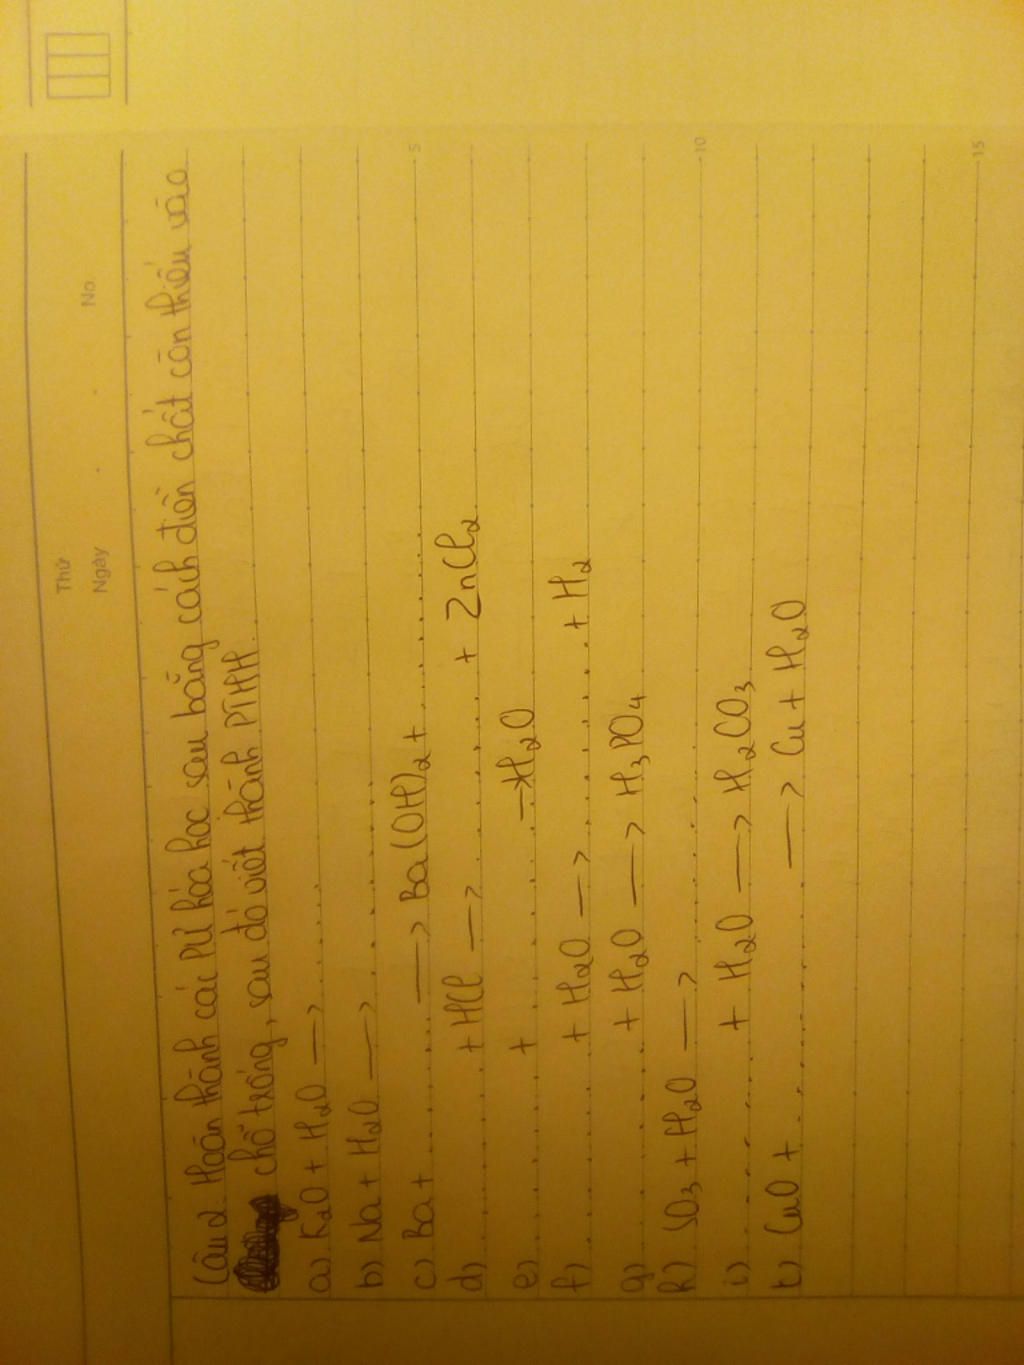 Thứ
Ngày . . No
Câu 2. Hoàn thành các PƯ hóa học sau bằng cách điền chất còn thiếu vào
chỗ trống, sau đó viết thành PTHH
a) K₂O + H₂O —> ........
b) Na + H₂O —> ........
c) Ba + ........ —> Ba(OH)₂ + ........
d) ........ + HCl —> ........ + ZnCl₂
e) ........ + ........ —> H₂O
5
f) ........ + H₂O —> ........ + H₂
g) ........ + H₂O —> H₃PO₄
h) SO₃ + H₂O —> ........
i) ........ + H₂O —> H₂CO₃
t) CuO + ........ —> Cu + H₂O
10
15